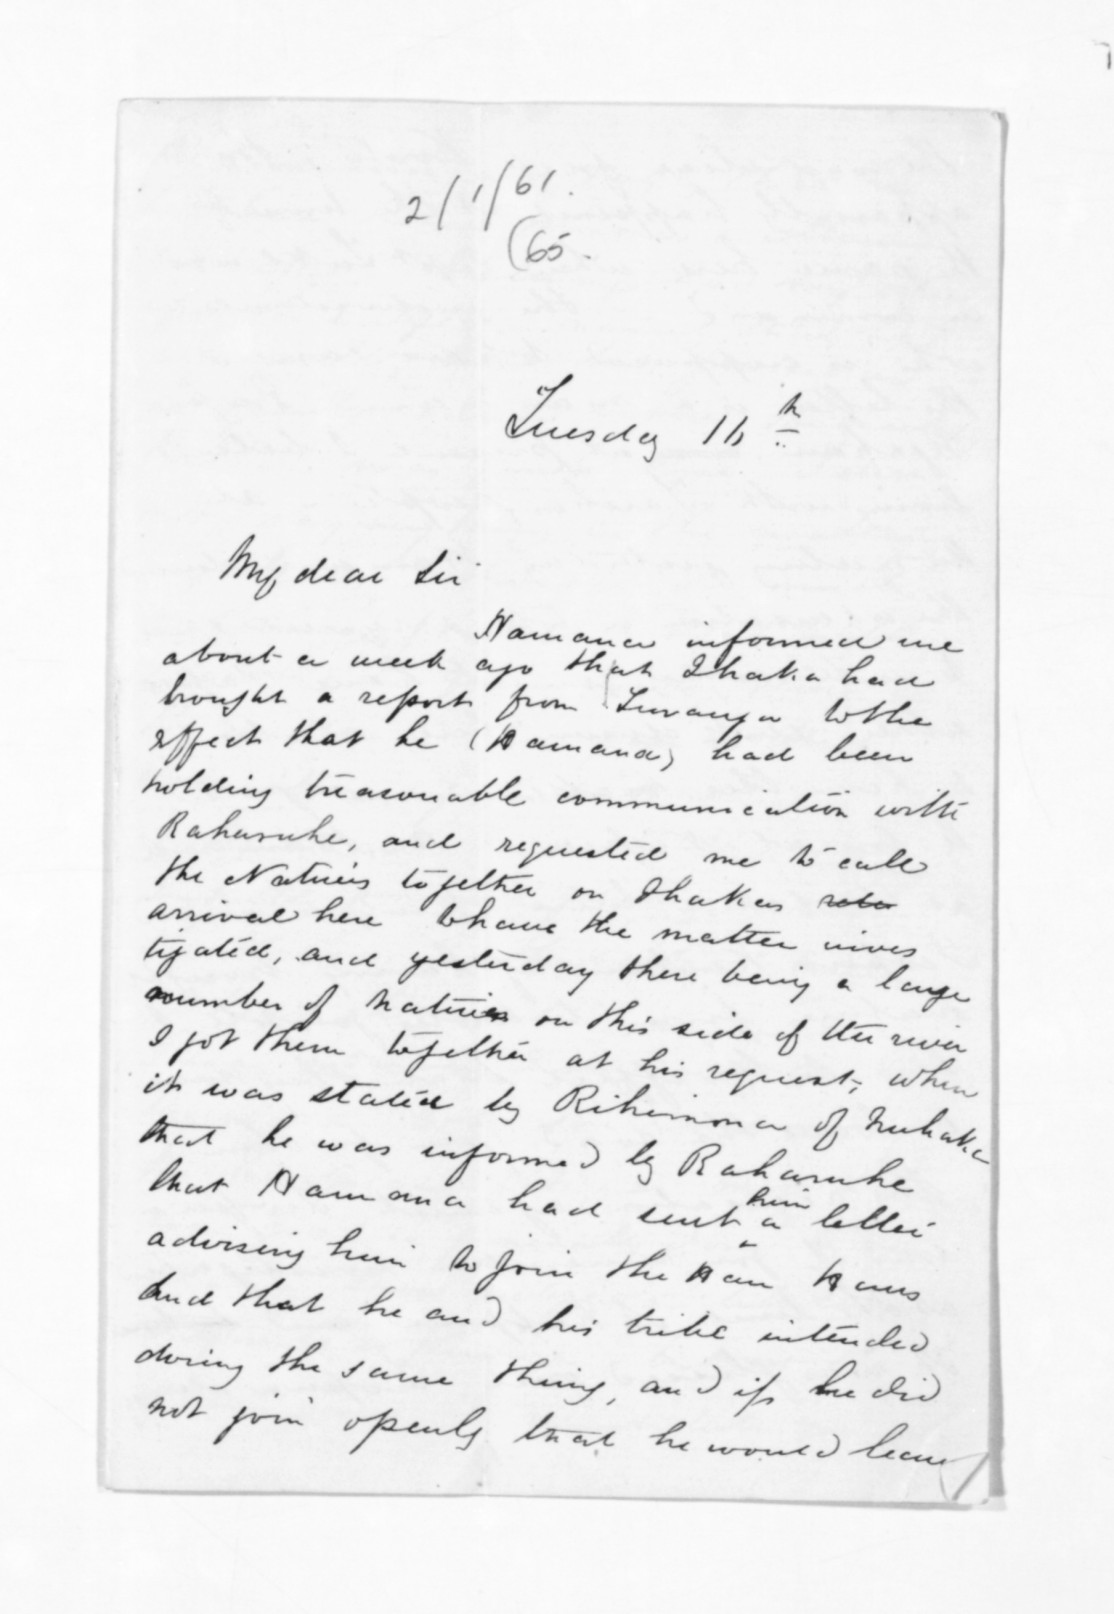 2/1/61.
(65.
Tuesday 16th
My dear Sir
Hamana informed me
about a week ago that Ihaka had
brought a report from Turanga to the
effect that he (Hamana) had been
holding treasonable communication with
Raharuhe, and requested me to call
the Natives together on Ihakas
arrival here to have the matter inves
tigated, and yesterday there being a large
number of natives on this side of the river
I got them together at his request, when
it was stated by Rihimona of Nuhaka
that he was informed by Raharuhe
that Hamana had sent him a letter
advising him to join the Hau Haus
and that he and his tribe intended
doing the same thing, and if he did
not join openly that he would leave